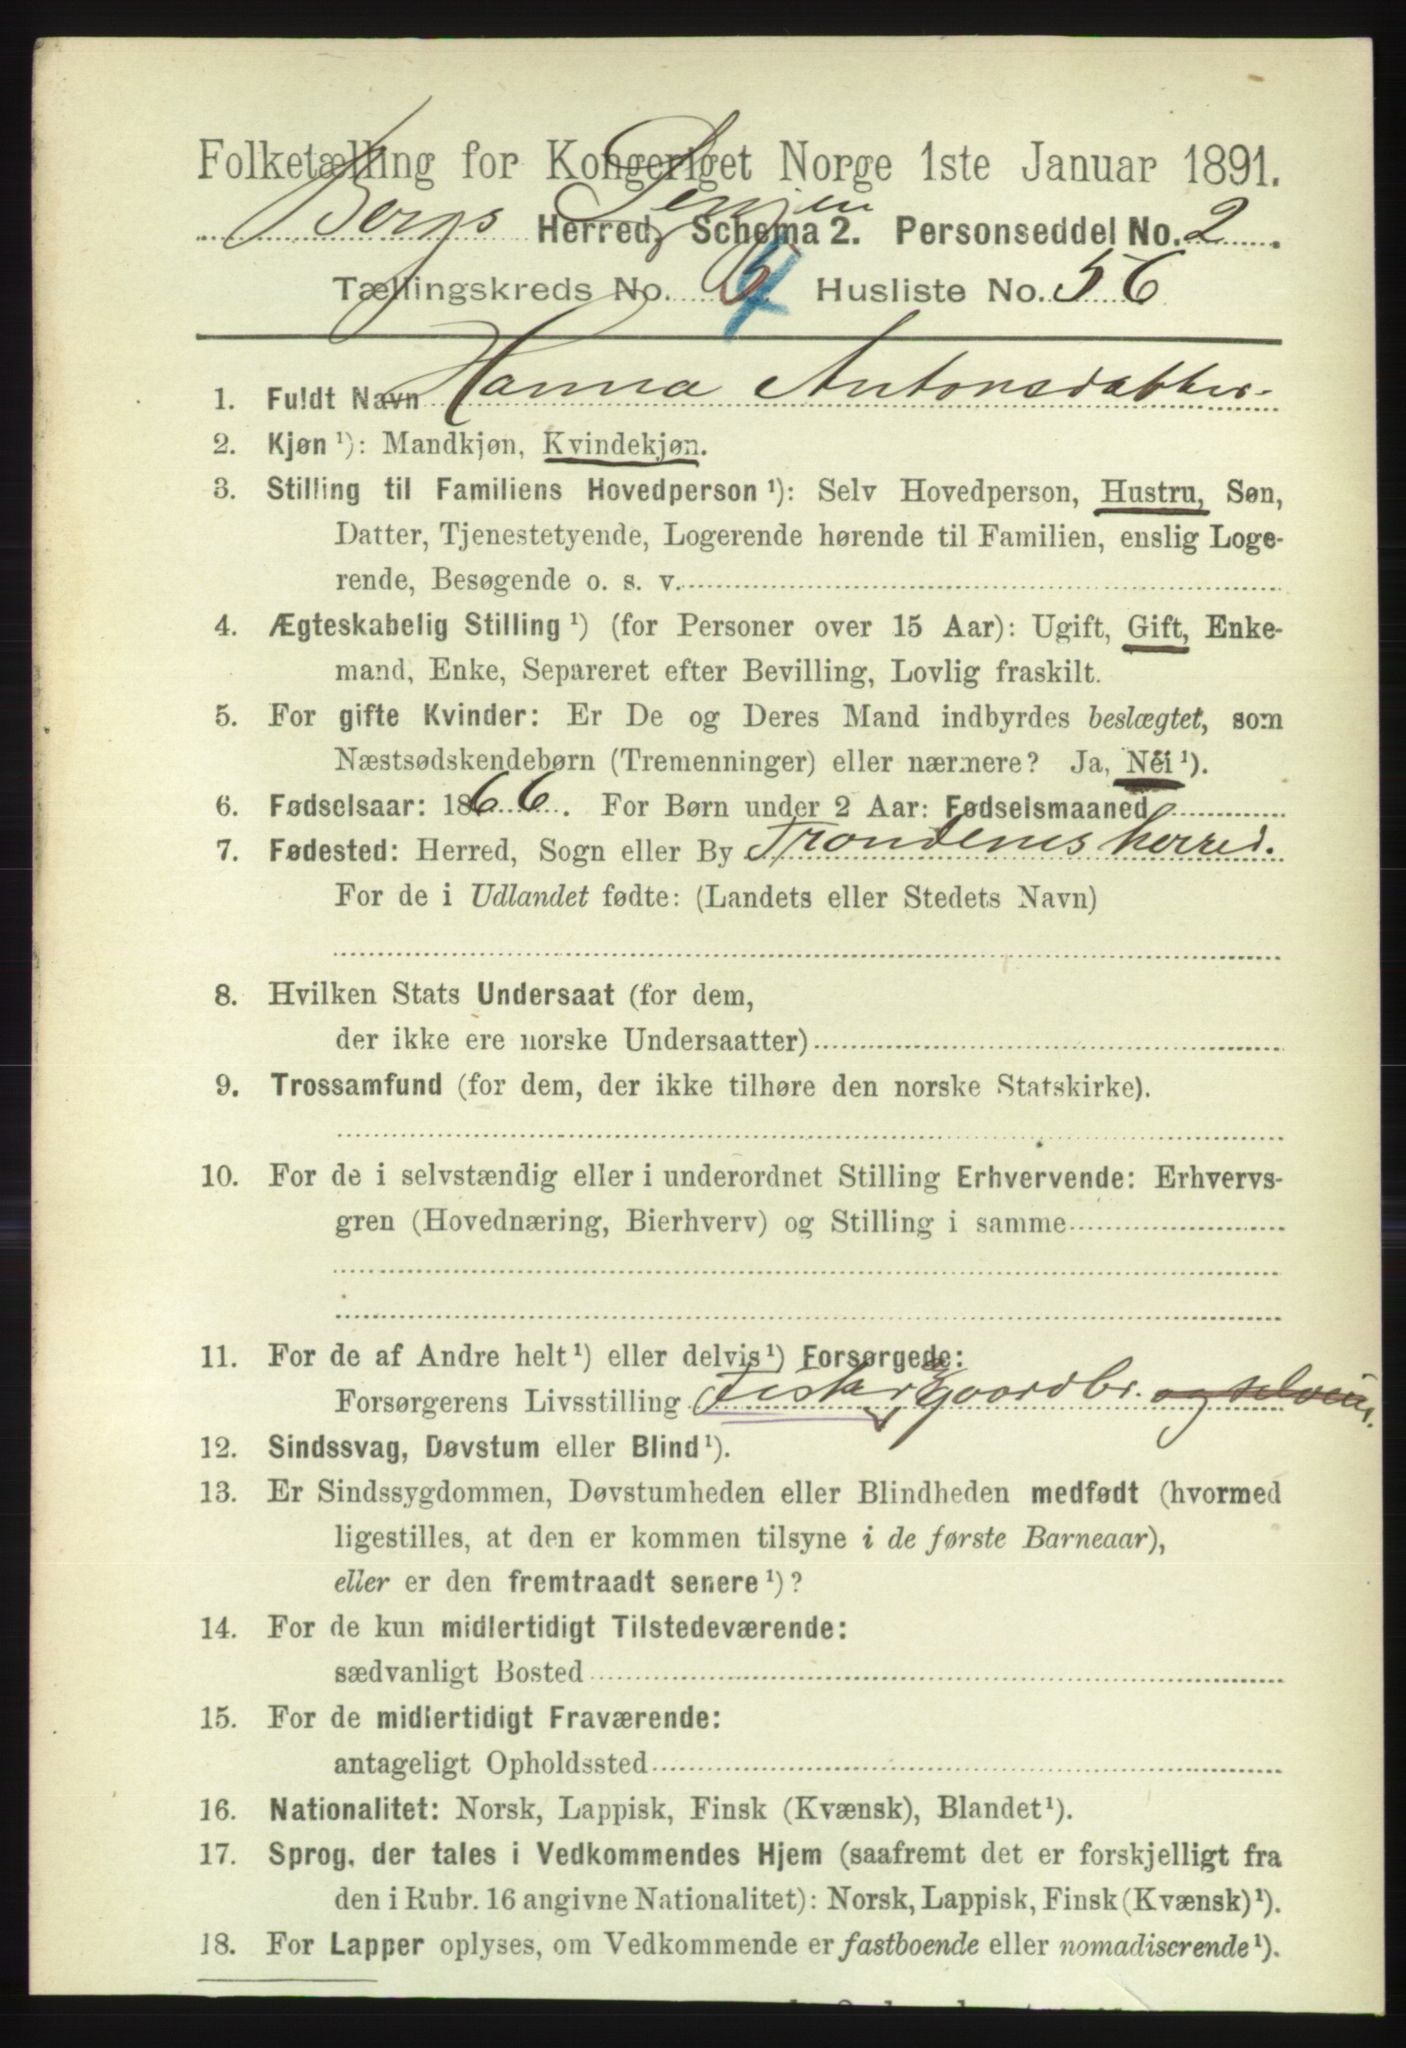 Folketælling for Kongeriget Norge 1ste Januar 1891.
Bergs Senjen Herred, Schema 2. Personseddel No. 2.
Tællingskreds No. 4 Husliste No. 56
1. Fuldt Navn Hanna Antonsdatter.
2. Kjøn ¹): Mandkjøn, Kvindekjøn.
3. Stilling til Familiens Hovedperson ¹): Selv Hovedperson, Hustru, Søn,
Datter, Tjenestetyende, Logerende hørende til Familien, enslig Loge-
rende, Besøgende o. s. v.
4. Ægteskabelig Stilling ¹) (for Personer over 15 Aar): Ugift, Gift, Enke-
mand, Enke, Separeret efter Bevilling, Lovlig fraskilt.
5. For gifte Kvinder: Er De og Deres Mand indbyrdes beslægtet, som
Næstsødskendebørn (Tremenninger) eller nærmere? Ja, Nei ¹).
6. Fødselsaar: 1866. For Børn under 2 Aar: Fødselsmaaned
7. Fødested: Herred, Sogn eller By Trondenes herred.
For de i Udlandet fødte: (Landets eller Stedets Navn)
8. Hvilken Stats Undersaat (for dem,
der ikke ere norske Undersaatter)
9. Trossamfund (for dem, der ikke tilhøre den norske Statskirke).
10. For de i selvstændig eller i underordnet Stilling Erhvervende: Erhvervs-
gren (Hovednæring, Bierhverv) og Stilling i samme
11. For de af Andre helt ¹) eller delvis ¹) Forsørgede:
Forsørgerens Livsstilling Fisker, Gaardbr. og selveier.
12. Sindssvag, Døvstum eller Blind ¹).
13. Er Sindssygdommen, Døvstumheden eller Blindheden medfødt (hvormed
ligestilles, at den er kommen tilsyne i de første Barneaar),
eller er den fremtraadt senere ¹)?
14. For de kun midlertidigt Tilstedeværende:
sædvanligt Bosted
15. For de midlertidigt Fraværende:
antageligt Opholdssted
16. Nationalitet: Norsk, Lappisk, Finsk (Kvænsk), Blandet ¹).
17. Sprog, der tales i Vedkommendes Hjem (saafremt det er forskjelligt fra
den i Rubr. 16 angivne Nationalitet): Norsk, Lappisk, Finsk (Kvænsk) ¹).
18. For Lapper oplyses, om Vedkommende er fastboende eller nomadiserende ¹).